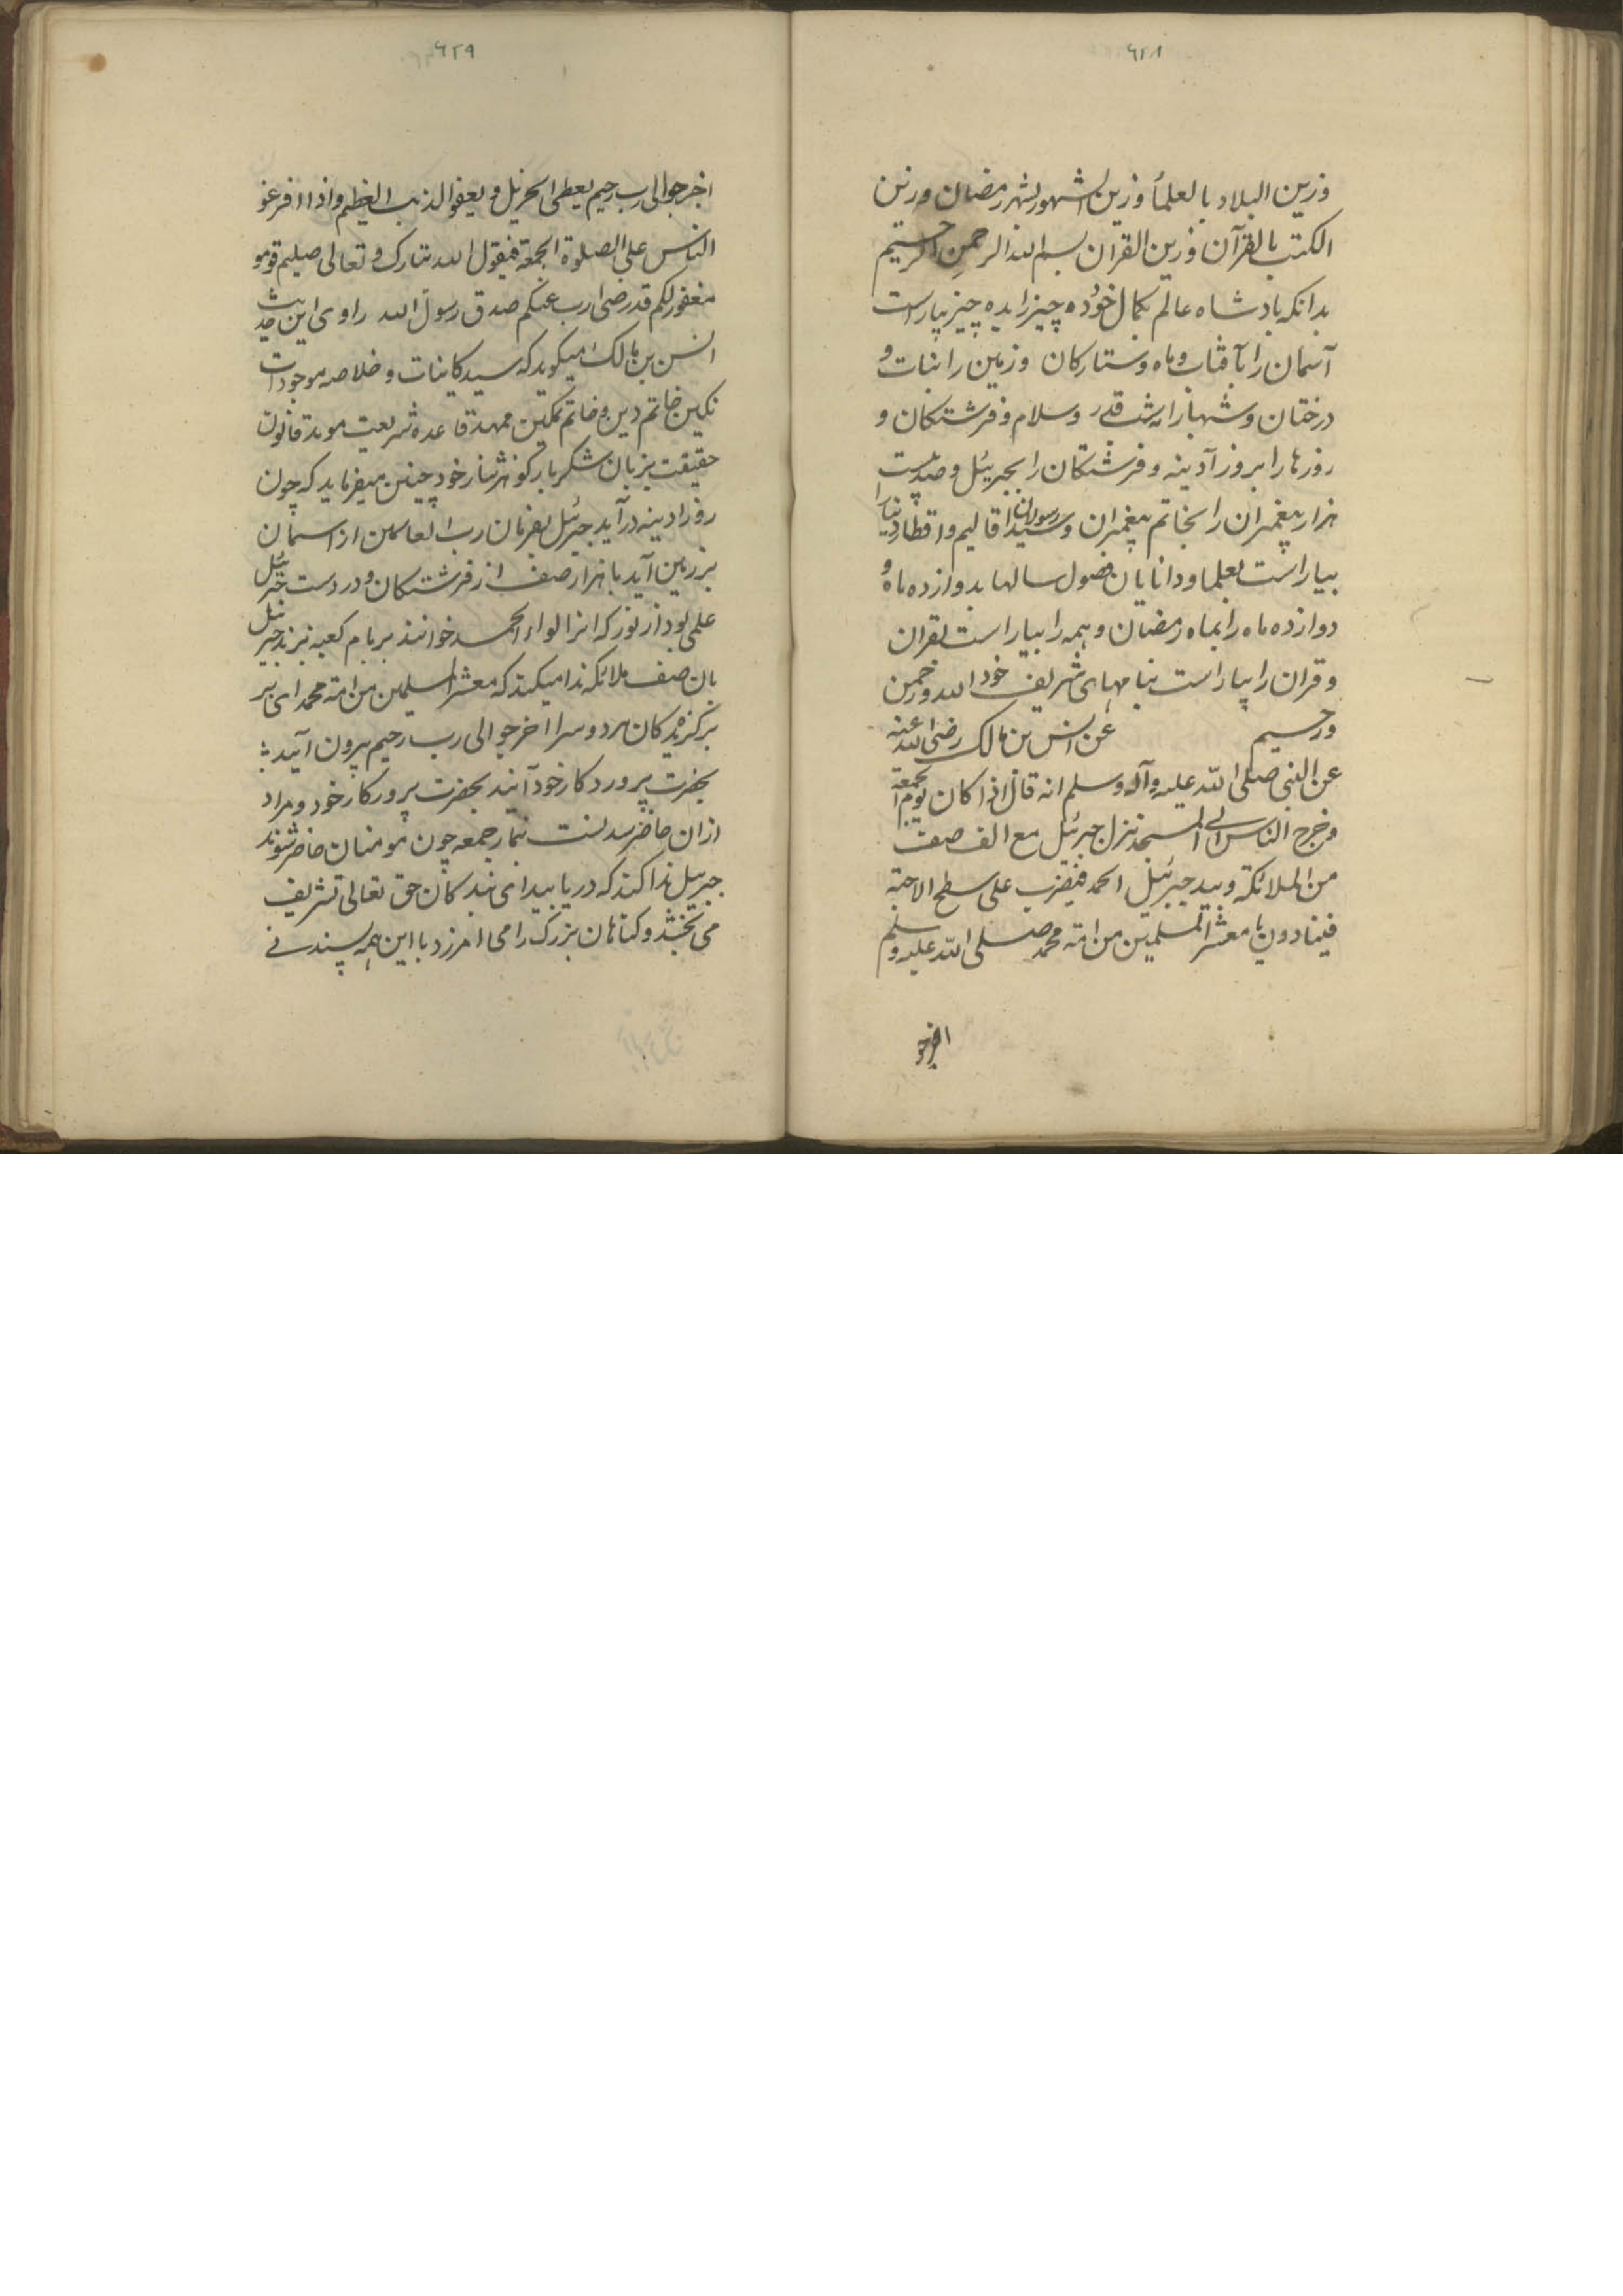 ٦٢٨
وزین البلاد بالعلمأ وزین الشهور بشهر رمضان وزین
الکتب بالقرآن وزین القران بسم الله الرحمن الرحیم
بدانکه بادشاه عالم بکمال خود ده چیز را بده چیز بیاراست
آسمان را بآفتاب وماه وستارکان وزمین را بنبات و
درختان وشبها را به شب قدر وسلام وفرشتکان و
روزها را بروز آدینه وفرشتکان را بجبرئیل وصد بیست
هزار پیغمبران را بخاتم پیغمبران وسید رسولان اقالیم واقطار دنیا را
بیاراست بعلما ودانایان فصول سالها بدوازده ماه و
دوازده ماه را بماه رمضان وهمه را بیاراست بقران
وقران را بیاراست بنامهای شریف خود الله ورحمن
ورحیم عن انس بن مالک رضی الله عنه
عن النبی صلی الله علیه وآله وسلم انه قال اذا کان یوم الجمعة
وخرج الناس الی المسجد نزل جبرئیل مع الف صف
من الملائکة وبید جبرئیل الحمد فیضرب علی سطح
فینادون یا معشر المسلمین من امة محمد صلی الله علیه وسلم
اخرجو
٦٢٩
اخرجوا الی رب رحیم یعطی الجزیل ویعفو الذنب العظیم واذا افرغو
الناس علی الصلوة الجمعة فیقول الله تبارک وتعالی صلیتم قومو
مغفور لکم قد رضی رب عنکم صدق رسول الله راوی این حدیث
انس بن مالک میکوید که سید کاینات وخلاصه موجودات
نکین خاتم دین وخاتم تمکین ممهد قاعده شریعت موید قانون
حقیقت بزبان شکربار کوهر نثار خود چنین میفرماید که چون
روز ادینه درآید جبرئیل بفرمان رب العالمین از اسمان
بر زمین آید با هزار صف از فرشتکان ودر دست جبرئیل
علمی بود از نور که انرا لواء الحمد خوانند بر بام کعبه بزند جبرئیل
بان صف ملائکه ندا میکند که معشر المسلمین من امة محمد ای
برکزیدکان هر دو سرا اخرجو الی رب رحیم بیرون آیید
بحضرت پروردکار خود آیند بحضرت پرورکار خود ومراد
ازان حاضر نماز جمعه چون مومنان حاضر شوند
جبرییل ندا کند که دریابید ای بندکان حق تعالی تشریف
می بخشد وکناهان بزرک را می امرزد با این همه